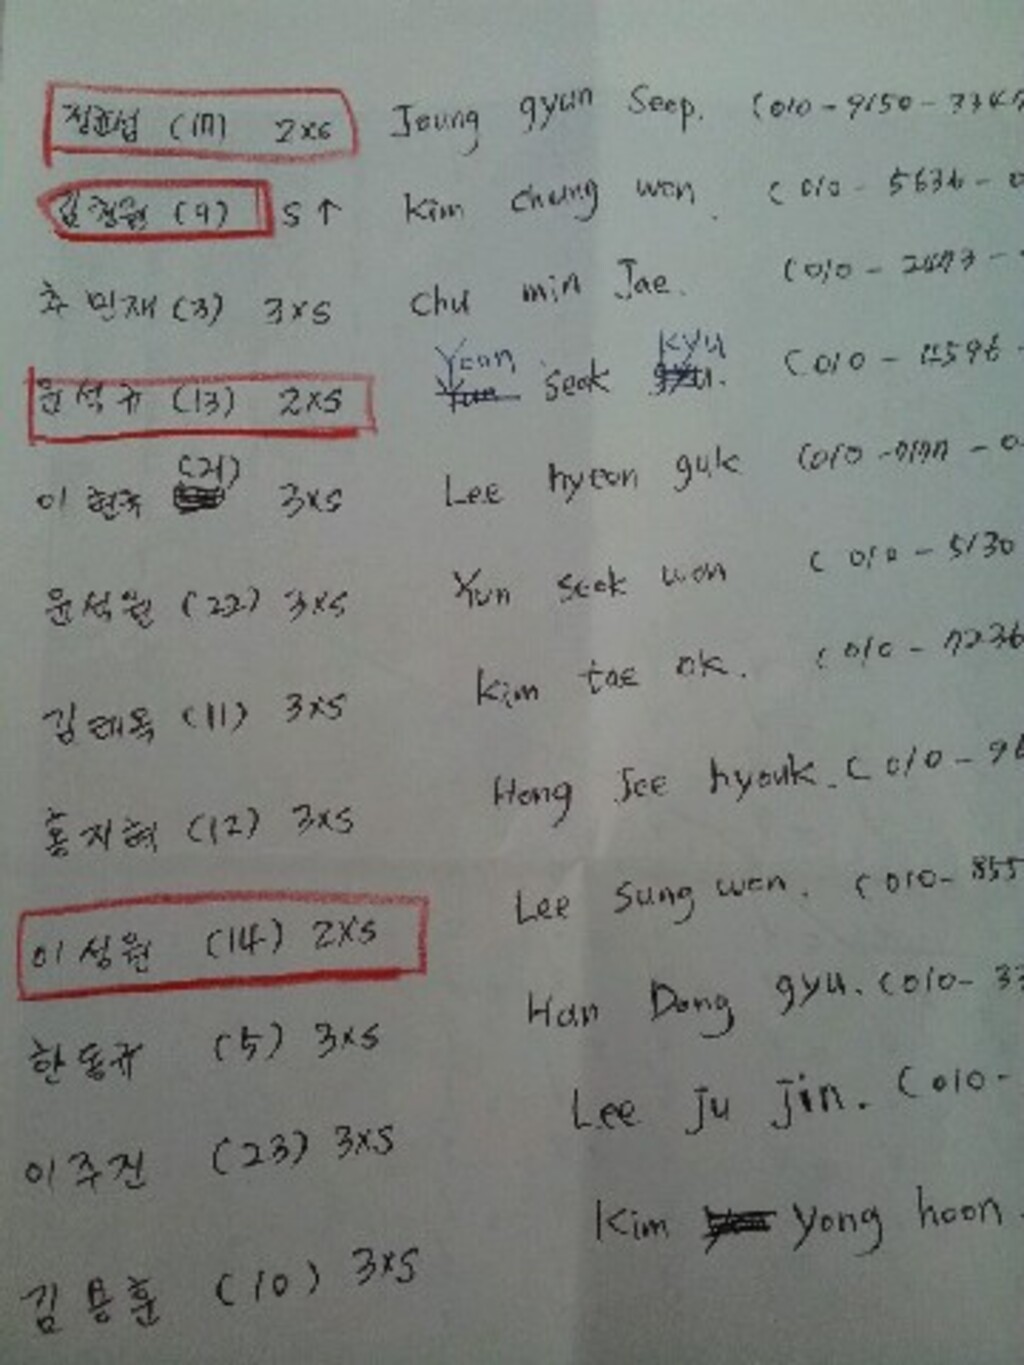 정균섭 (17) 2XS Joung gyun Seop. (010-9150-3347
김청원 (9) S↑ Kim chung won. (010-5636-0
추민재 (3) 3XS Chu min Jae. (010-2473-
윤석규 (13) 2XS Yoon seok kyu. (010-
이현국 (21) 3XS Lee hyeon guk (010-7177-0
윤석원 (22) 3XS Yun seok won (010-5130
김태옥 (11) 3XS Kim tae ok. (010-7236
홍지혁 (12) 3XS Hong Jee hyouk. (010-96
이성원 (14) 2XS Lee Sung won. (010-855
한동규 (5) 3XS Han Dong gyu. (010-33
이주진 (23) 3XS Lee ju jin. (010-
김용훈 (10) 3XS Kim Yong hoon.